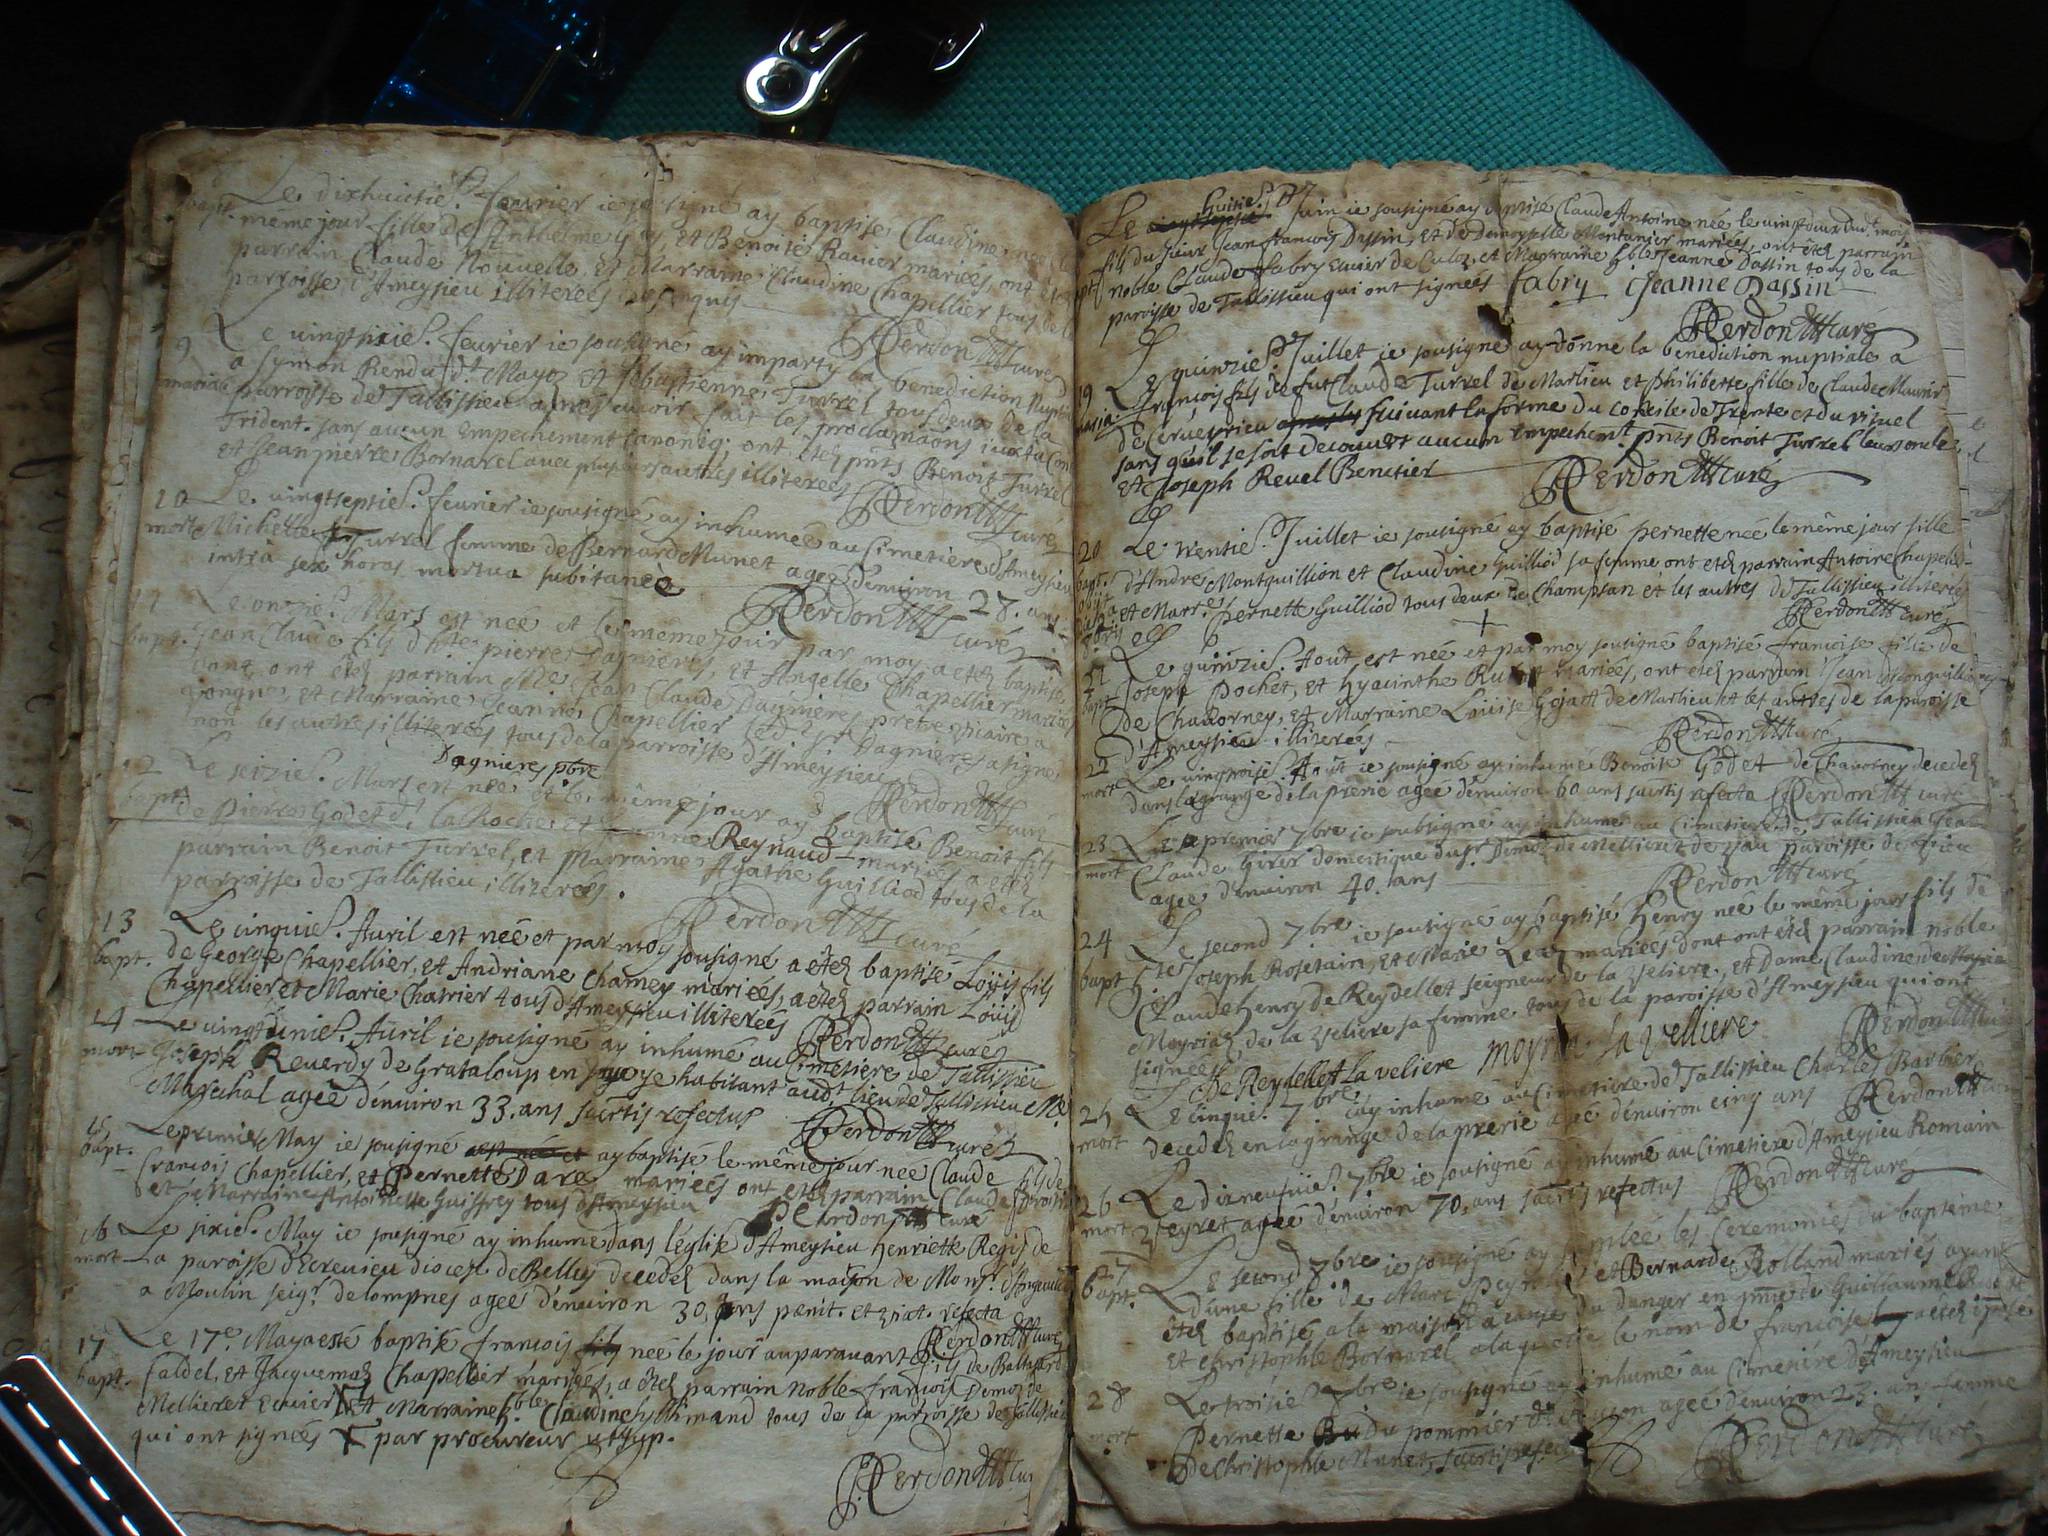 Le dixhuictie. fevrier ie sousigné ay baptisé Claudine née le
bapt. meme jour fille de Anthelme Gay, et Benoite Ravier mariées, ont été
parrain Claude Nouvelle et Marraine Claudine Chapellier tous de la
parroisse d'Ameysieu illiterées
Perdon curé
9 Le vingtsixie. fevrier ie sousigné ay imparty la benediction nuptiale
mariage a Symon Rendu dt. Mayoz et Sebastienne Turrel tous deux de la
parroisse de Tallissieu apres avoir fait les proclamaôns iuxta Con
Trident. sans aucun empechement canoniq; ont étés pnts Benoit Turrel
et Jean pierre Bornarel avec plusieurs autres illiterées
Perdon curé
10 Le vingtseptie. fevrier ie sousigné ay inhumée au Cimetiere d'Ameysieu
mort Michelle Turrel femme de Bernard Munet ageé d'environ 28. ans
intrà sex horas mortua subitaneè
Perdon curé
11 Le onzie. Mars est neé et le même jour par moy a eté baptisé
bapt. Jean Claude fils d'hte. pierre Dagnieres, et Angelle Chapellier mariées
dont ont étés parrain Me. Jean Claude Dagnieres prêtre vicaire a
Jongne, et Marraine Jeanne Chapellier led. Sr Dagnieres a signé
non les autres illiterées tous de la parroisse d'Ameysieu
Dagnieres pbre
Perdon curé
12 Le seizie. Mars est neé et le même jour ay baptisé Benoit fils
bapt. de Pierre Godet dt. la Roche et Reynaud mariées a étés
parrain Benoit Turrel, et Marraine Agathe Guilliod tous de la
parroisse de Tallissieu illiterées.
Perdon curé
13 Le cinquie. Avril est neé et par moy sousigné a étés baptisé Loüis fils
bapt. de George Chapellier, et Andriane Chamey mariées, a étés parrain Loüis
Chapellier et Marie Charrier tous d'Ameysieu illiterées
Perdon curé
14 Le vingtunie. Avril ie sousigné ay inhumé au Cimetiere de Tallissieu
mort Joseph Reverdy de Grataloup en habitant aud. lieu de Tallissieu Me.
Marechal ageé d'environ 33. ans sacrtis refectus
Perdon curé
15 Le premier May ie sousigné ay baptisé le même jour neé Claude fils de
bapt. francois Chapellier, et Pernette Dare mariées ont étés parrain Claude
et Marraine Antoinette Guiffrey tous d'Ameysieu
Perdon curé
16 Le sixie. May ie sousigné ay inhumé dans l'église d'Ameysieu henriette Regis de
mort La paroisse d'Ecrevieu diocese de Belley decedés dans la maison de Monsr.
a Moulin seigr. de lompnes ageé d'environ 30. ans pœnit. et viat. refecta
Perdon curé
17 Le 17e. May a esté baptisé francois neé le jour auparavant fils de Baltazard
bapt. faldel, et Jacquema Chapellier mariées, a étés parrain Noble francois Demoz de
Mellieret Ecuier et Marraine Claudine tous de la parroisse de Tallissieu
qui ont signées par procureur ut sup.
Perdon cur
Le huitie. Juin ie sousigné ay baptisé Claude Antoine née le vingtdeux mois
fils du Sieur Jean francois Dassin, et de Demoyselle Montanier mariées, ont étés parrain
bapt noble Claude fabry Ecuier de Culoz, et Marraine Jeanne Dassin tous de la
paroisse de Tallissieu qui ont signées fabry Jeanne Dassin
Perdon curé
19 Le quinzie. Juillet ie sousigné ay donne la benediction nuptiale a
maria francois fils de fut Claude Turrel de Marlieu et philiberte fille de Claude Mavrier
de Cerveyrieu suivant la forme du concile de Trente et du rituel
sans qu'il se soit decouvert aucun empechemt. pnts Benoit Turrel leurs oncle,
et Joseph Revel Benetier
Perdon curé
20 Le trentie. Juillet ie sousigné ay baptisé pernette neé le même jour fille
bapt. d'Andre Montquillion et Claudine Guilliod sa femme ont étés parrain Antoine Chapell
et Marre. Pernette Guilliod tous deux de Champsan et les autres de Tallissieu illiterés
Perdon curé
21 Le quinzie. Aoüt est neé et par moy sousigné baptisé francoise fille de
bapt Joseph Pochet, et Hyacinthe mariées, ont étés parrain Jean
de Chavorney, et Marraine Loüise Gojatt de Marlieu et les autres de la paroisse
d'Ameysieu illiterées
Perdon curé
22 Le vingtroisie. Aoüt ie sousigné ay inhumé Benoite Godet de Chavorney decedés
mort dans la grange de la prerie ageé d'environ 60 ans sacrtis refecta Perdon curé
23 Le premier 7bre ie soubsigné ay inhumé au Cimetiere de Tallissieu
mort Claude Girer domestique du sr Demoz de Mellieret de paroisse de
ageé d'environ 40. ans
Perdon curé
24 Le second 7bre ie sousigné ay baptisé Henry neé le même jour fils de
bapt hte. Joseph Rosetain, et Marie mariées dont ont étés parrain Noble
Claude henry de Reydellet seigneur de la veliere, et Dame Claudine de Moyria
Moyriat de la veliere sa femme tous de la paroisse d'Ameysieu qui ont
signées
De Reydellet la veliere moyria la velliere
Perdon curé
25 Le cinquie. 7bre ay inhumé au Cimetiere de Tallissieu Charles Barbier
mort decedés en la grange de la prerie ageé d'environ cinq ans Perdon curé
26 Le dixneufiie. 7bre ie sousigné ay inhumé au Cimetiere d'Ameysieu Romain
mort Veyret ageé d'environ 70, ans sacrtis refectus Perdon curé
27 Le second 8bre ie sousigné ay les ceremonies du baptème
bapt. d'une fille de Marc et Bernarde Rolland mariés ayant
étés baptisé a la maison a cause du danger en pnce de Guilliaume
et Christophle Bornarel a laquelle le nom de francoise
28 Le troisie 8bre ie sousigné ay inhumé au Cimetiére d'Ameysieu
mort Pernette Du pommier ageé d'environ 23. ans femme
de Christophle Munet, sacrtis refec
Perdon curé